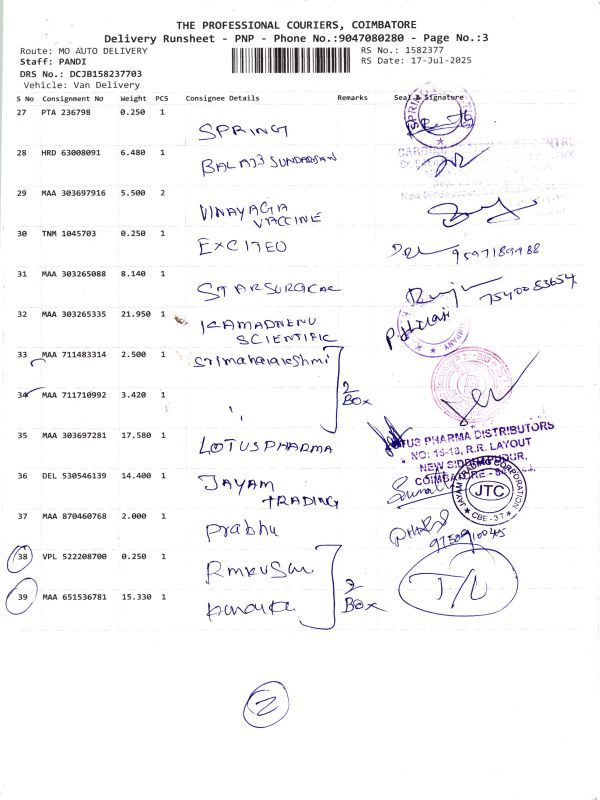 THE PROFESSIONAL COURIERS, COIMBATORE
Delivery Runsheet - PNP - Phone No.:9047080280 - Page No.:3
Route: MO AUTO DELIVERY
RS No.: 1582377
Staff: PANDI
RS Date: 17-Jul-2025
DRS No.: DCJB158237703
Vehicle: Van Delivery
S No Consignment No Weight PCS Consignee Details Remarks Seal & Signature
27 PTA 236798 0.250 1
SPRINGT
28 HRD 63008091 6.480 1
BALAJI SUNDARSAN
29 MAA 303697916 5.500 2
VINAYAGA
VACCINE
30 TNM 1045703 0.250 1
EXCITEO
9597189988
31 MAA 303265088 8.140 1
STARSURGICAL
7540083654
32 MAA 303265335 21.950 1
KAMADHENU
SCIENTIFIC
33 MAA 711483314 2.500 1
Srimahalakshmi
34 MAA 711710992 3.420 1
"
2
Box
35 MAA 303697281 17.580 1
LOTUS PHARMA
LOTUS PHARMA DISTRIBUTORS
NO: 15-18, R.R. LAYOUT
NEW SIDDHAPUDUR,
36 DEL 530546139 14.400 1
JAYAM
TRADING
JTC
CBE-37
37 MAA 870460768 2.000 1
Prabhu
38 VPL 522208700 0.250 1
39 MAA 651536781 15.330 1
2
Box
2